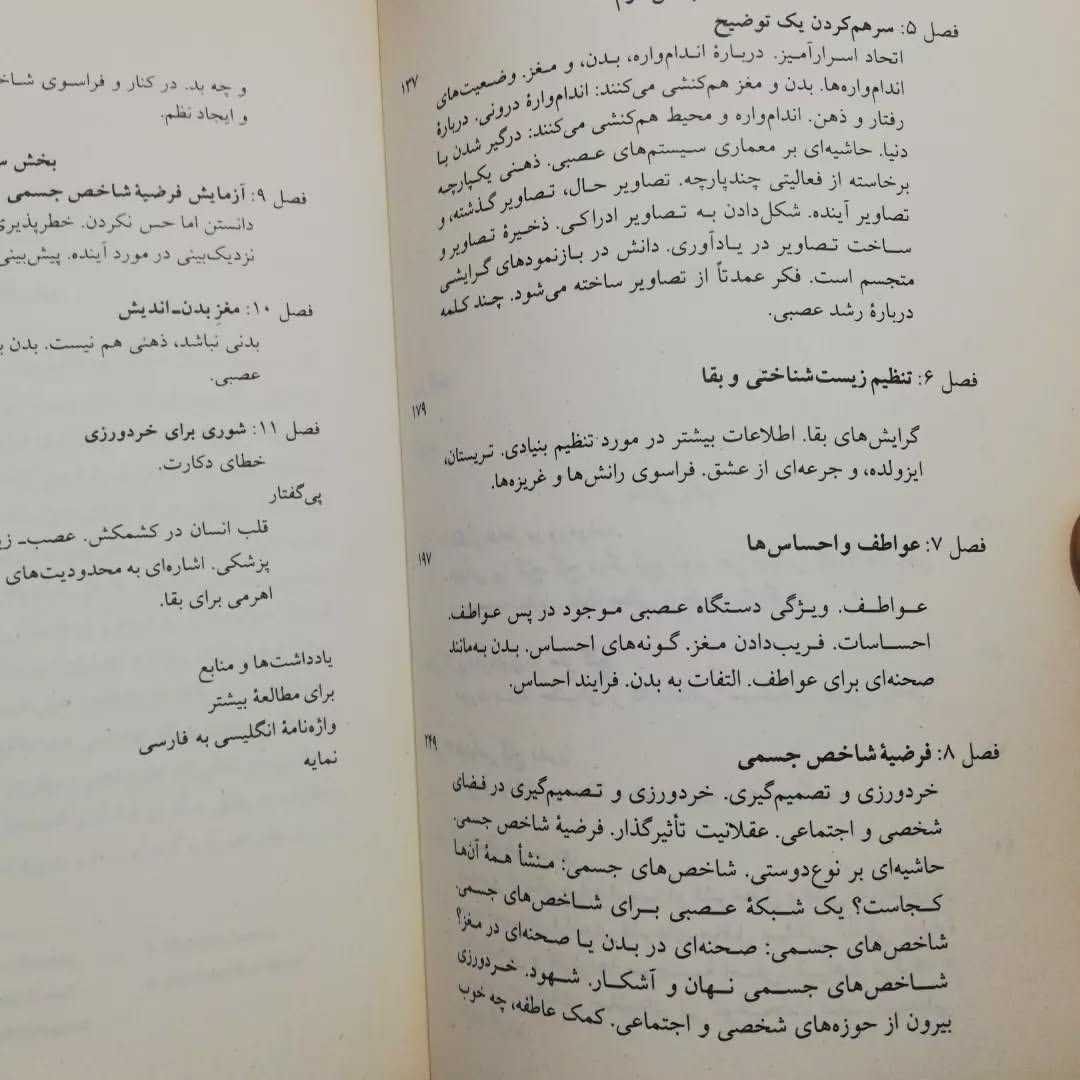 فصل ۵: سرهم‌کردن یک توضیح
۱۳۷
اتحاد اسرارآمیز. دربارهٔ اندام‌واره، بدن، و مغز. وضعیت‌های
اندام‌واره‌ها. بدن و مغز هم‌کنشی می‌کنند: اندام‌وارهٔ درونی. دربارهٔ
رفتار و ذهن. اندام‌واره و محیط هم‌کنشی می‌کنند: درگیر شدن با
دنیا. حاشیه‌ای بر معماری سیستم‌های عصبی. ذهنی یکپارچه
برخاسته از فعالیتی چندپارچه. تصاویر حال، تصاویر گذشته، و
تصاویر آینده. شکل‌دادن به تصاویر ادراکی. ذخیرهٔ تصاویر و
ساخت تصاویر در یادآوری. دانش در بازنمودهای گرایشی
متجسم است. فکر عمدتاً از تصاویر ساخته می‌شود. چند کلمه
دربارهٔ رشد عصبی.
فصل ۶: تنظیم زیست‌شناختی و بقا
۱۷۹
گرایش‌های بقا. اطلاعات بیشتر در مورد تنظیم بنیادی. تریستان،
ایزولده، و جرعه‌ای از عشق. فراسوی رانش‌ها و غریزه‌ها.
فصل ۷: عواطف و احساس‌ها
۱۹۷
عواطف. ویژگی دستگاه عصبی موجود در پس عواطف.
احساسات. فریب‌دادن مغز. گونه‌های احساس. بدن به‌مانند
صحنه‌ای برای عواطف. التفات به بدن. فرایند احساس.
فصل ۸: فرضیهٔ شاخص جسمی
۲۴۹
خردورزی و تصمیم‌گیری. خردورزی و تصمیم‌گیری در فضای
شخصی و اجتماعی. عقلانیت تأثیرگذار. فرضیهٔ شاخص جسمی.
حاشیه‌ای بر نوع‌دوستی. شاخص‌های جسمی: منشأ همهٔ آن‌ها
کجاست؟ یک شبکهٔ عصبی برای شاخص‌های جسمی.
شاخص‌های جسمی: صحنه‌ای در بدن یا صحنه‌ای در مغز؟
شاخص‌های جسمی نهان و آشکار. شهود. خردورزی
بیرون از حوزه‌های شخصی و اجتماعی. کمک عاطفه، چه خوب
و چه بد. در کنار و فراسوی
و ایجاد نظم.
بخش
فصل ۹: آزمایش فرضیهٔ شاخص جسمی
دانستن اما حس نکردن. خطرپذیری
نزدیک‌بینی در مورد آینده. پیش‌بینی
فصل ۱۰: مغزِ بدن‌ـ‌اندیش
بدنی نباشد، ذهنی هم نیست. بدن
عصبی.
فصل ۱۱: شوری برای خردورزی
خطای دکارت.
پی‌گفتار
قلب انسان در کشمکش. عصب‌ـ
پزشکی. اشاره‌ای به محدودیت‌های
اهرمی برای بقا.
یادداشت‌ها و منابع
برای مطالعهٔ بیشتر
واژه‌نامهٔ انگلیسی به فارسی
نمایه